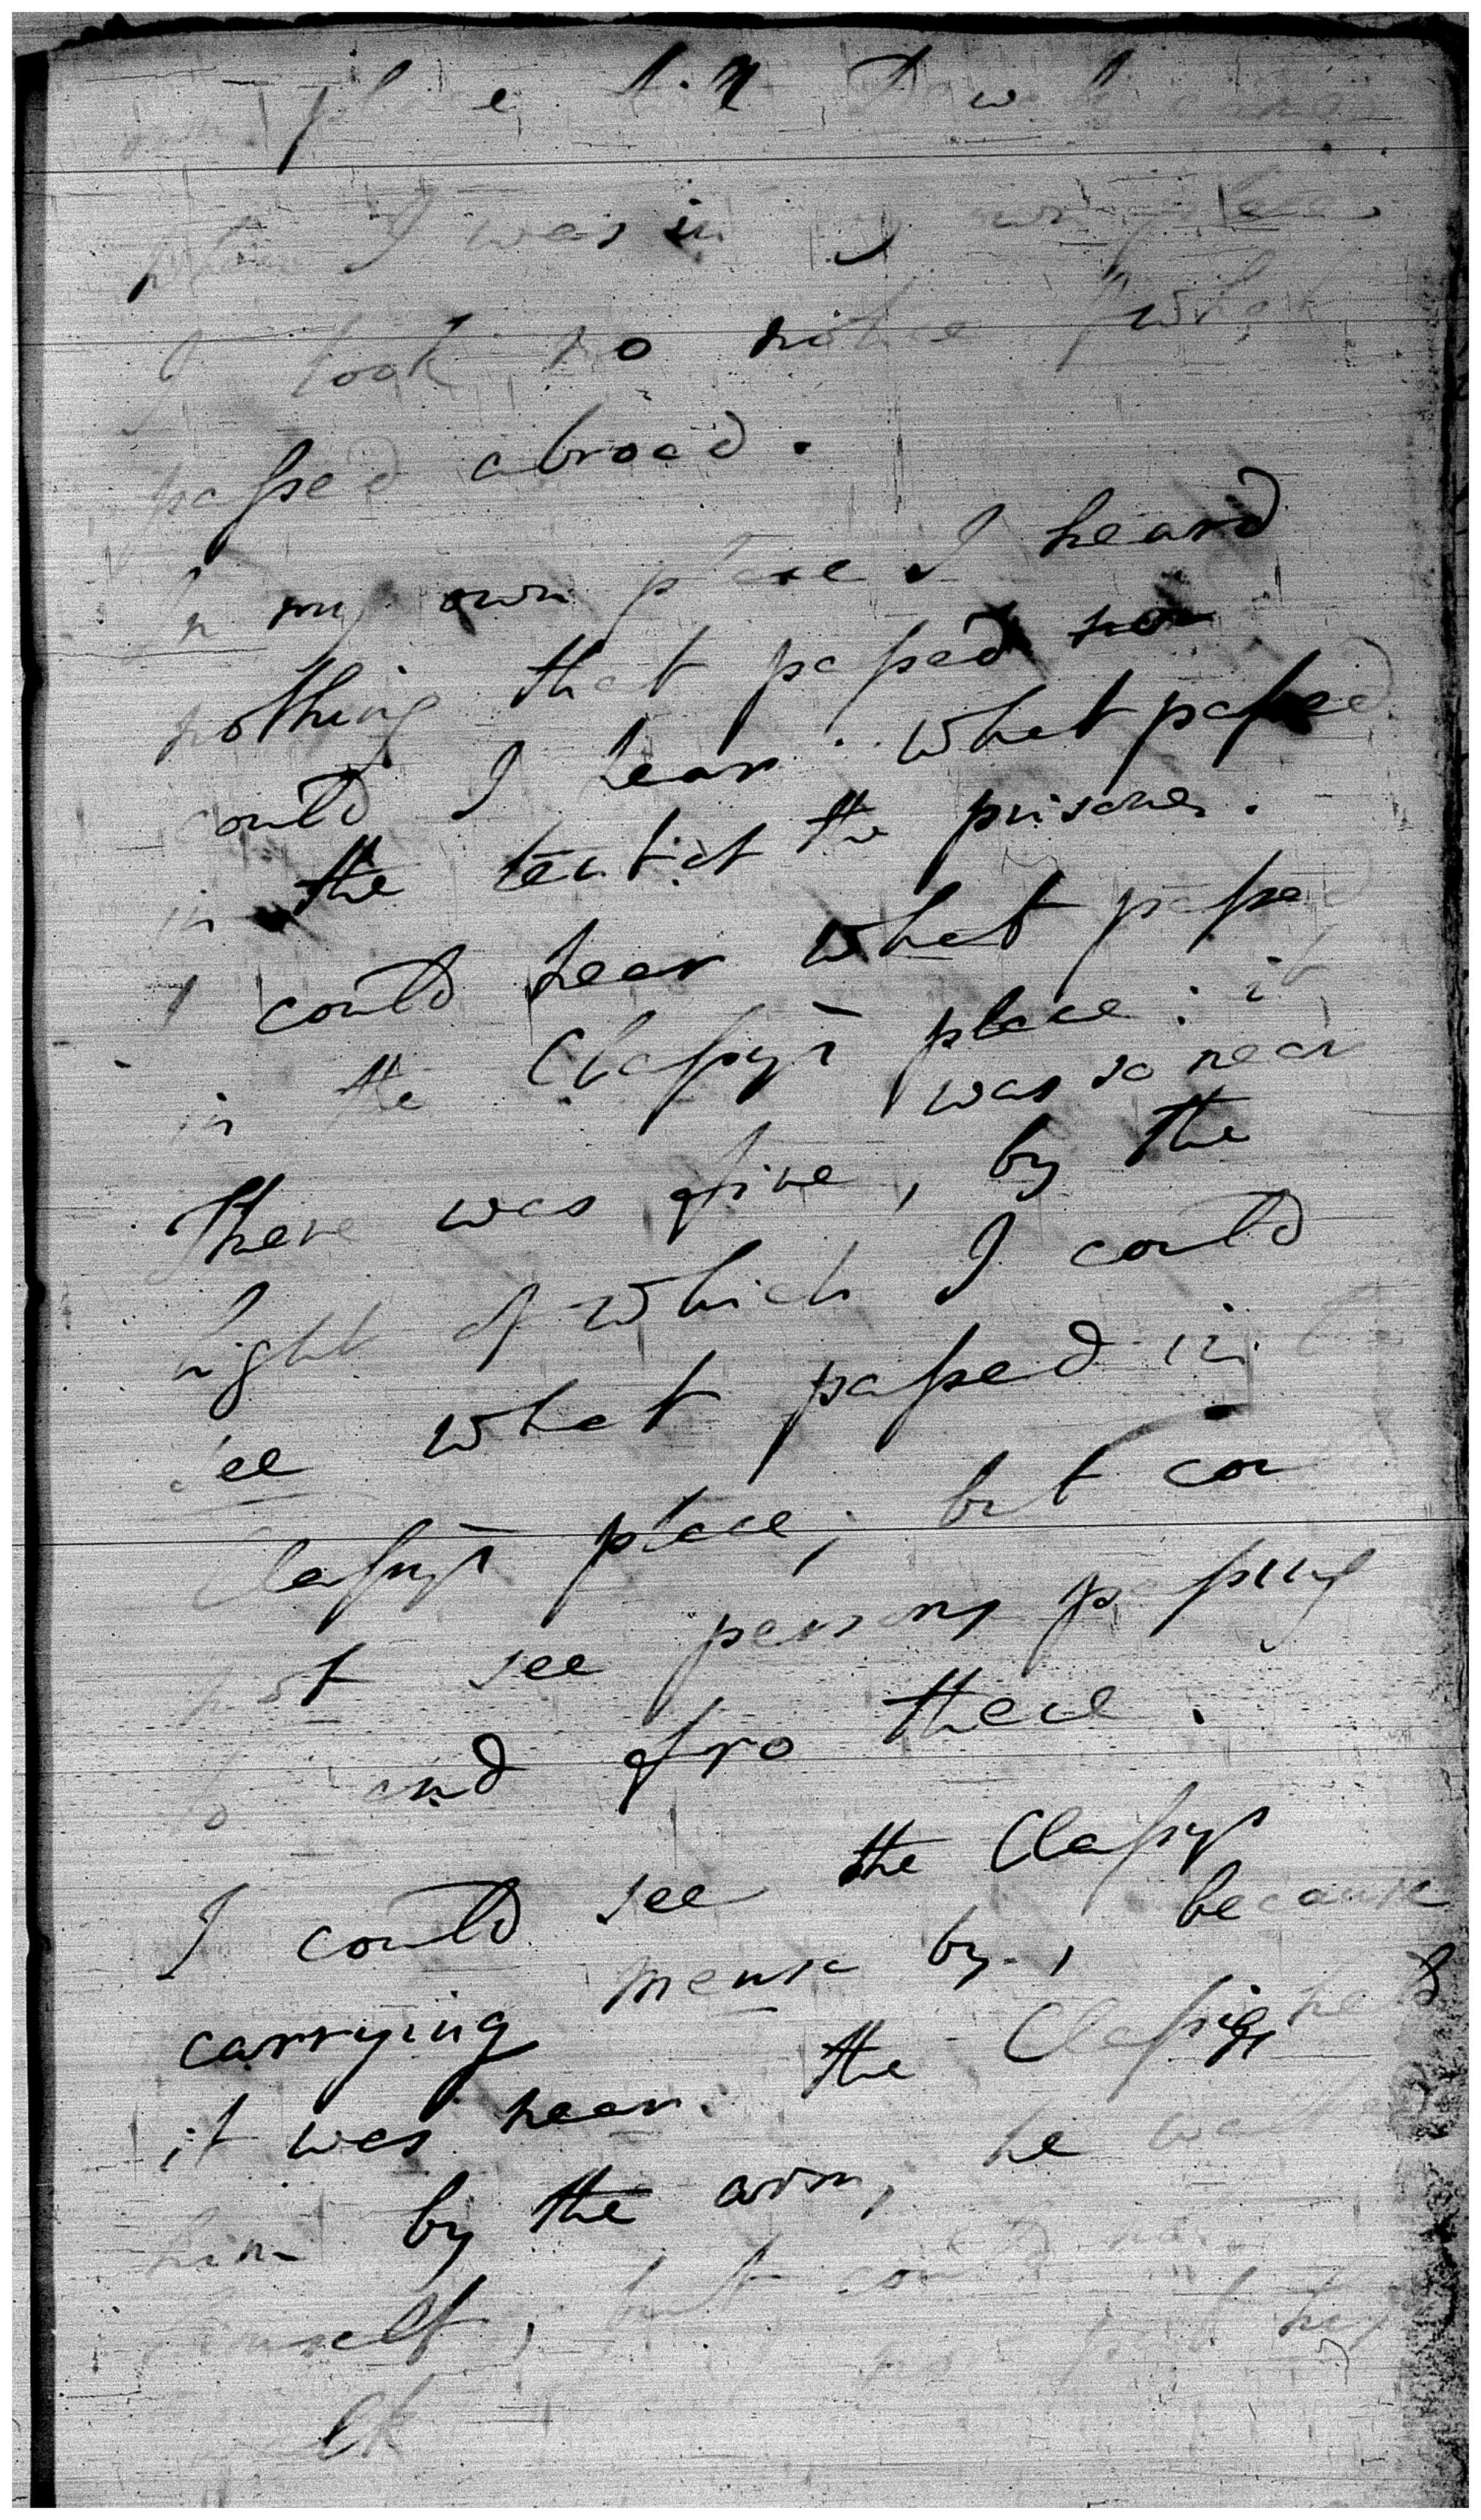 place
I was in my own place
I took no notice of what
passed abroad.
In my own place I heard
nothing that passed nor
could I hear what passed
in the tent of the prisoner.
I could hear what passed
in the Classy's place: it
was so near
There was fire, by the
light of which I could
see what passed in the
Classy's place; but could
not see persons passing
to and fro there.
I could see the Classys
carrying by, because
it was near. the Classies held
him by the arm, he
himself, but could not